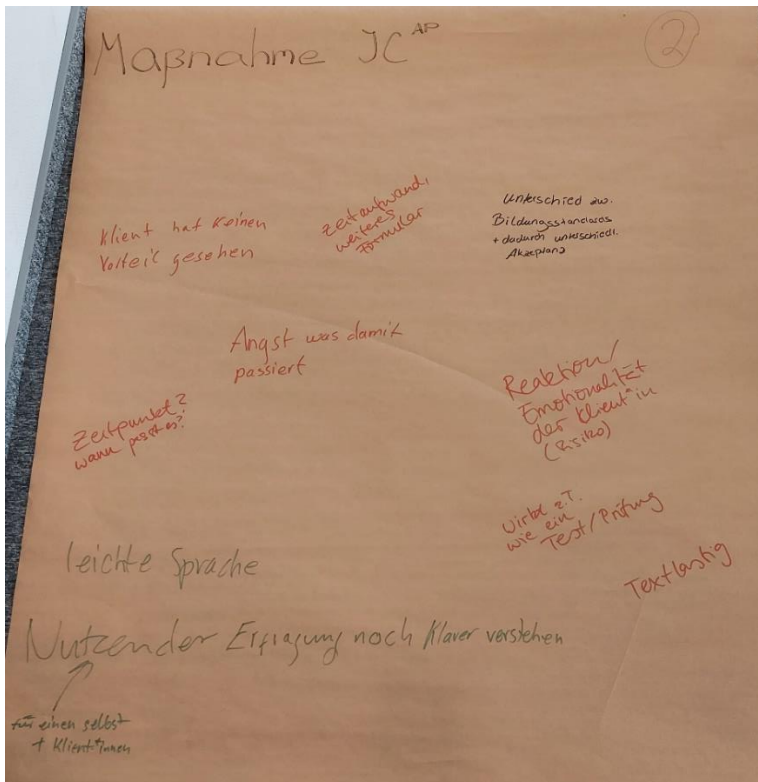 Maßnahme JC AP
2
Klient hat keinen
Vorteil gesehen
Zeitaufwand,
weiteres
Formular
Unterschied zw.
Bildungsstandards
+ dadurch unterschiedl.
Akzeptanz
Angst was damit
passiert
Zeitpunkt?
wann passt es?
Reaktion/
Emotionalität
der Klient*in
(Risiko)
wirkt z.T.
wie ein
Test/Prüfung
Textlastig
leichte Sprache
Nutzen der Erfragung noch klarer verstehen
für einen selbst
+ Klient*innen